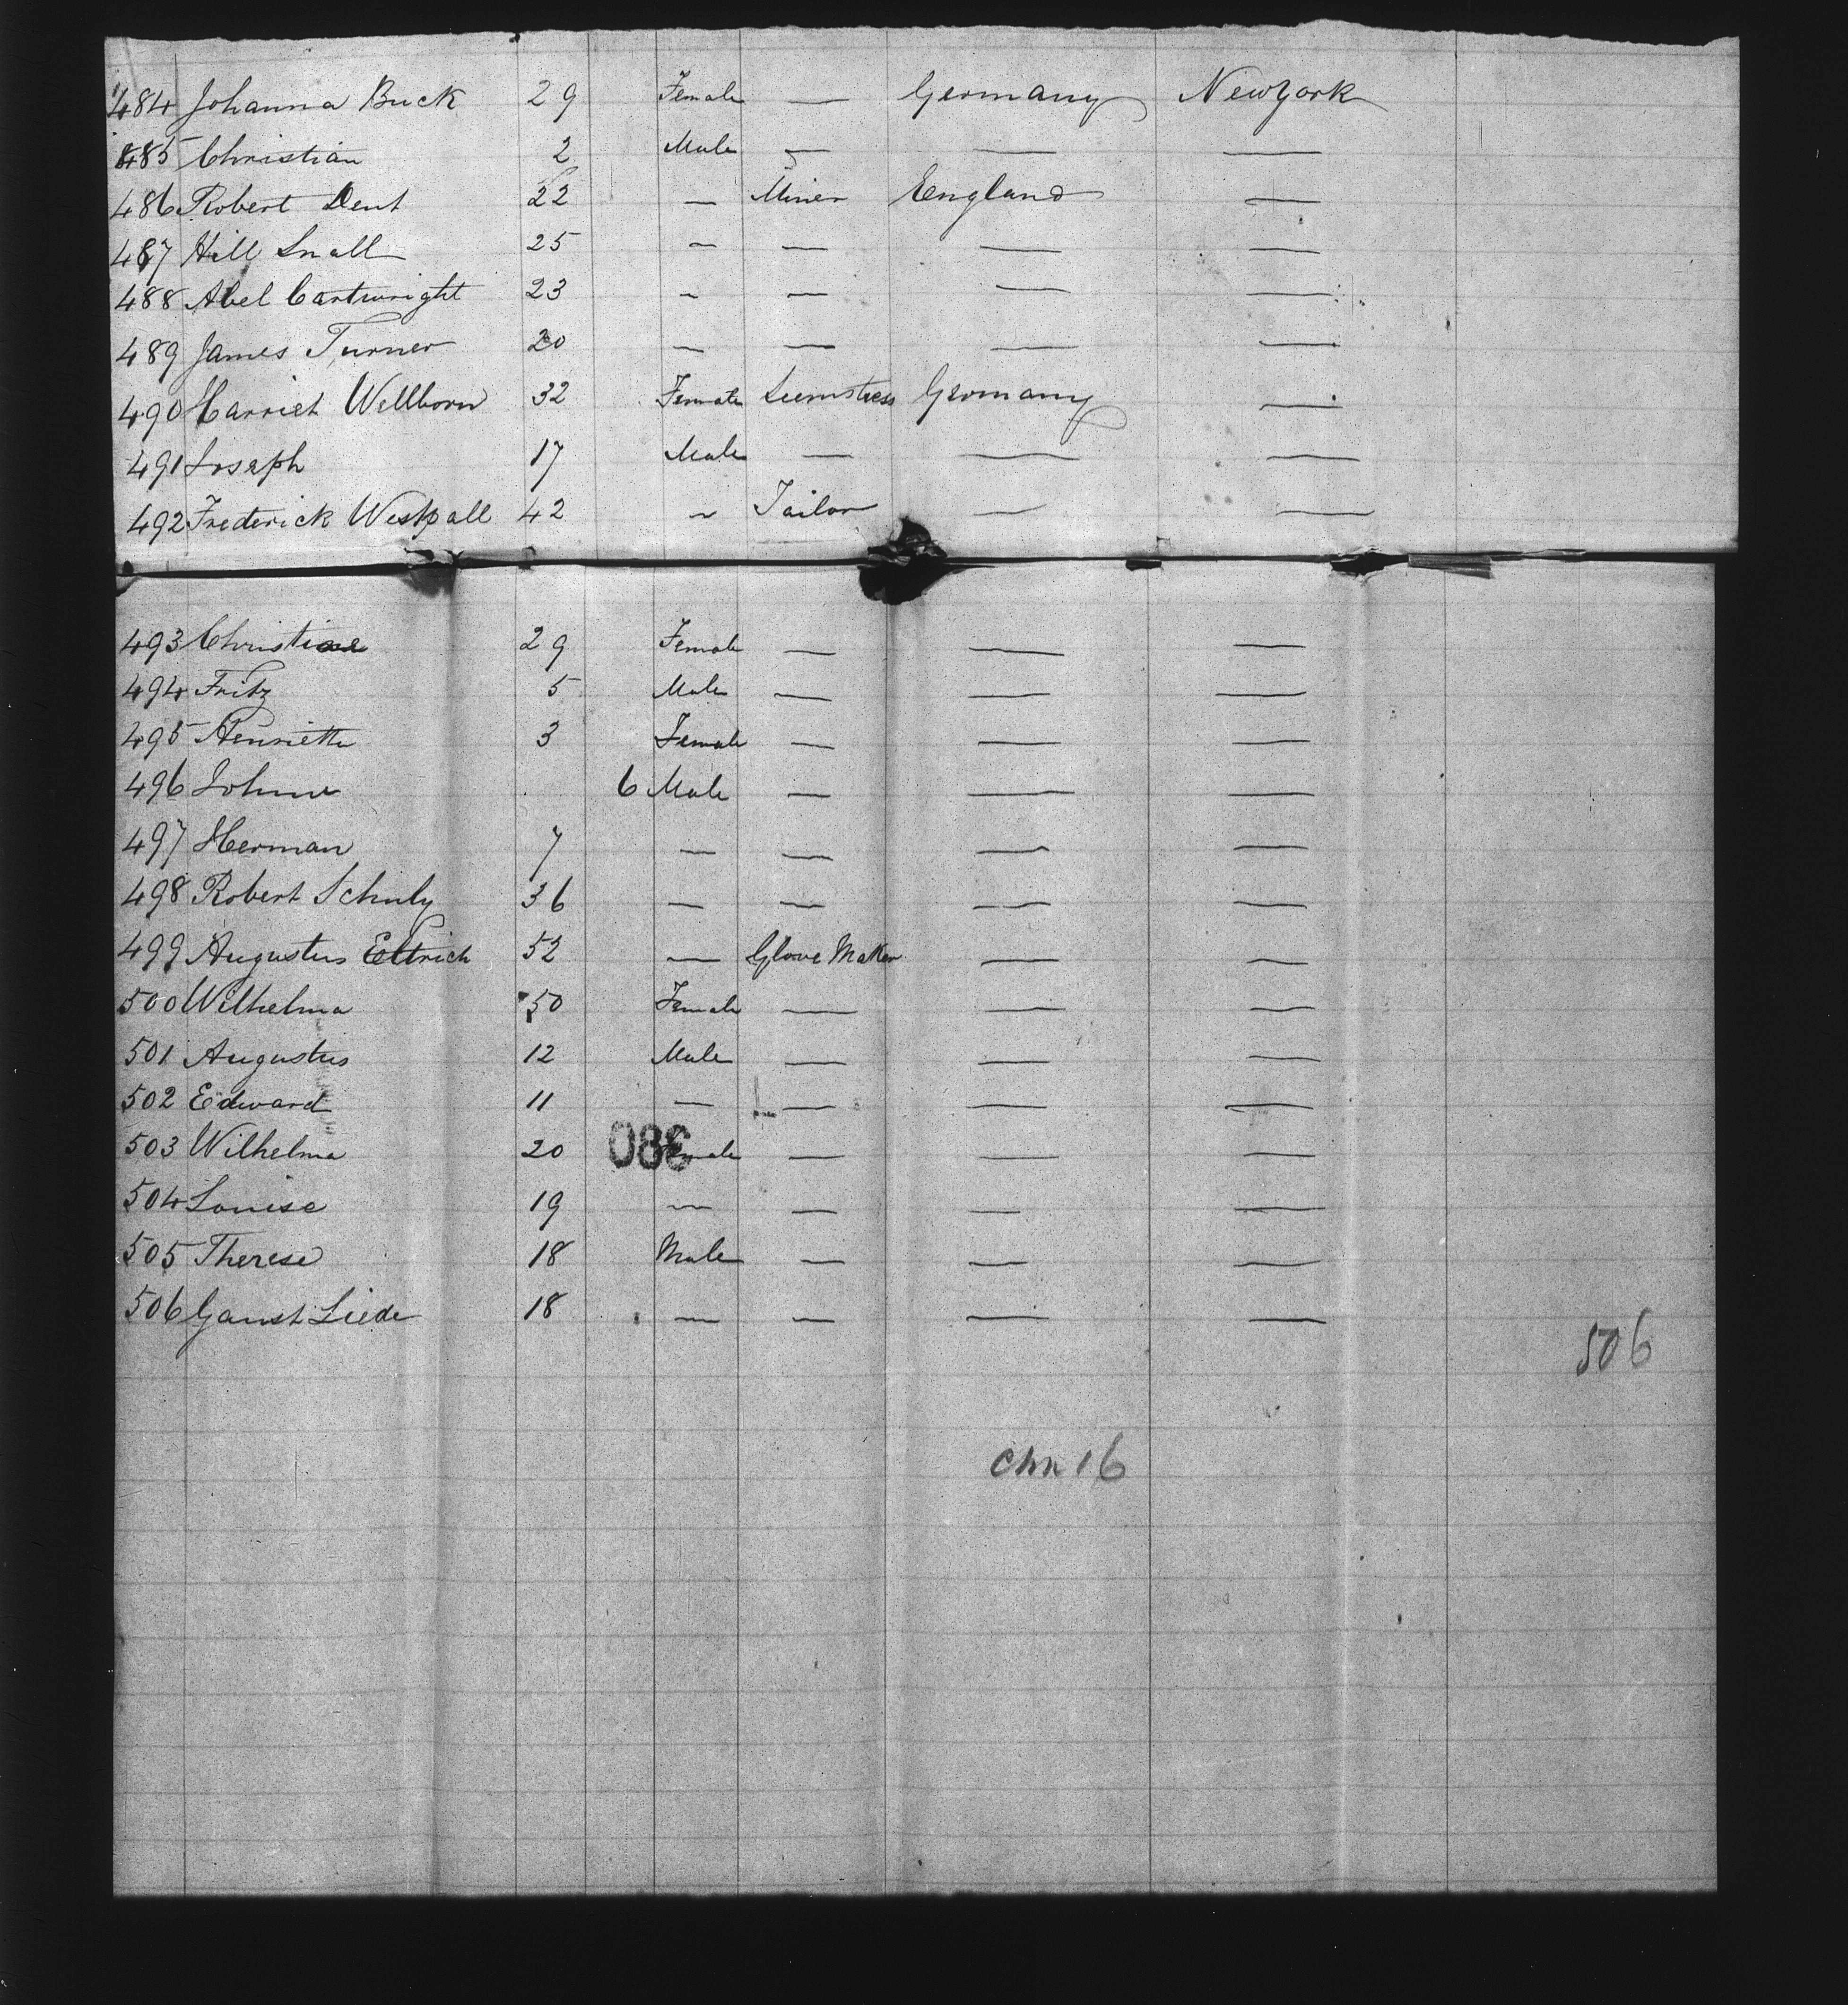 484 Johanna Buck 29 Female — Germany New York
485 Christian 2 Male — — —
486 Robert Dent 22 — Miner England —
487 Hill Snall 25 — — — —
488 Abel Cartwright 23 — — — —
489 James Turner 20 — — — —
490 Harriet Wellborn 32 Female Seemstress Germany —
491 Joseph 17 Male — — —
492 Frederick Westpall 42 — Tailor — —
493 Christine 29 Female — — —
494 Fritz 5 Male — — —
495 Henriette 3 Female — — —
496 6 Male — — —
497 Herman 7 — — — —
498 Robert Schuly 36 — — — —
499 Augustus Ettrich 52 — Glove Maker — —
500 Wilhelma 50 Female — — —
501 Augustus 12 Male — — —
502 Edward 11 — — — —
503 Wilhelma 20 Female — — —
380
504 Louise 19 — — — —
505 Therese 18 Male — — —
506 Liede 18 — — — —
506
chn 16